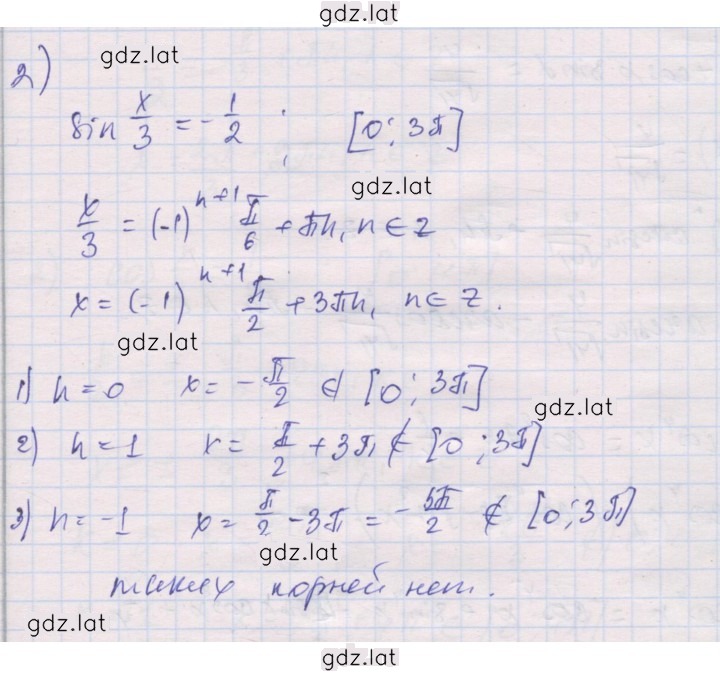 gdz.lat
2)
gdz.lat
sin x/3 = - 1/2 ; [0; 3π]
gdz.lat
x/3 = (-1)^(n+1) π/6 + πn, n ∈ Z
x = (-1)^(n+1) π/2 + 3πn, n ∈ Z.
gdz.lat
1) n = 0 x = - π/2 ∉ [0; 3π]
gdz.lat
2) n = 1 x = π/2 + 3π ∉ [0; 3π]
3) n = -1 x = π/2 - 3π = - 5π/2 ∉ [0; 3π]
gdz.lat
таких корней нет.
gdz.lat
gdz.lat